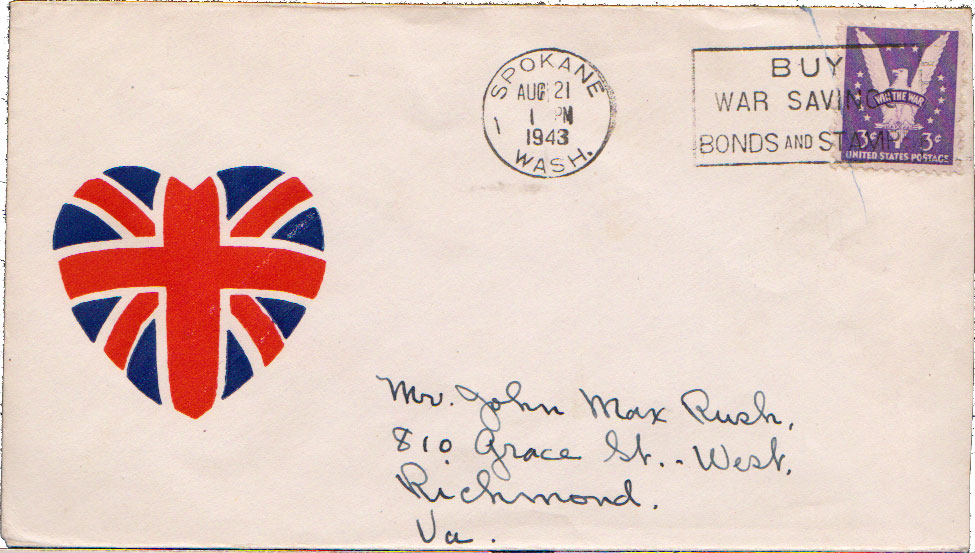 SPOKANE
AUG 21
1 PM
1943
WASH.
1
BUY
WAR SAVINGS
BONDS AND STAMPS
WIN THE WAR
3¢ 3¢
UNITED STATES POSTAGE
Mr. John Max Rush,
810 Grace St. - West.
Richmond.
Va.